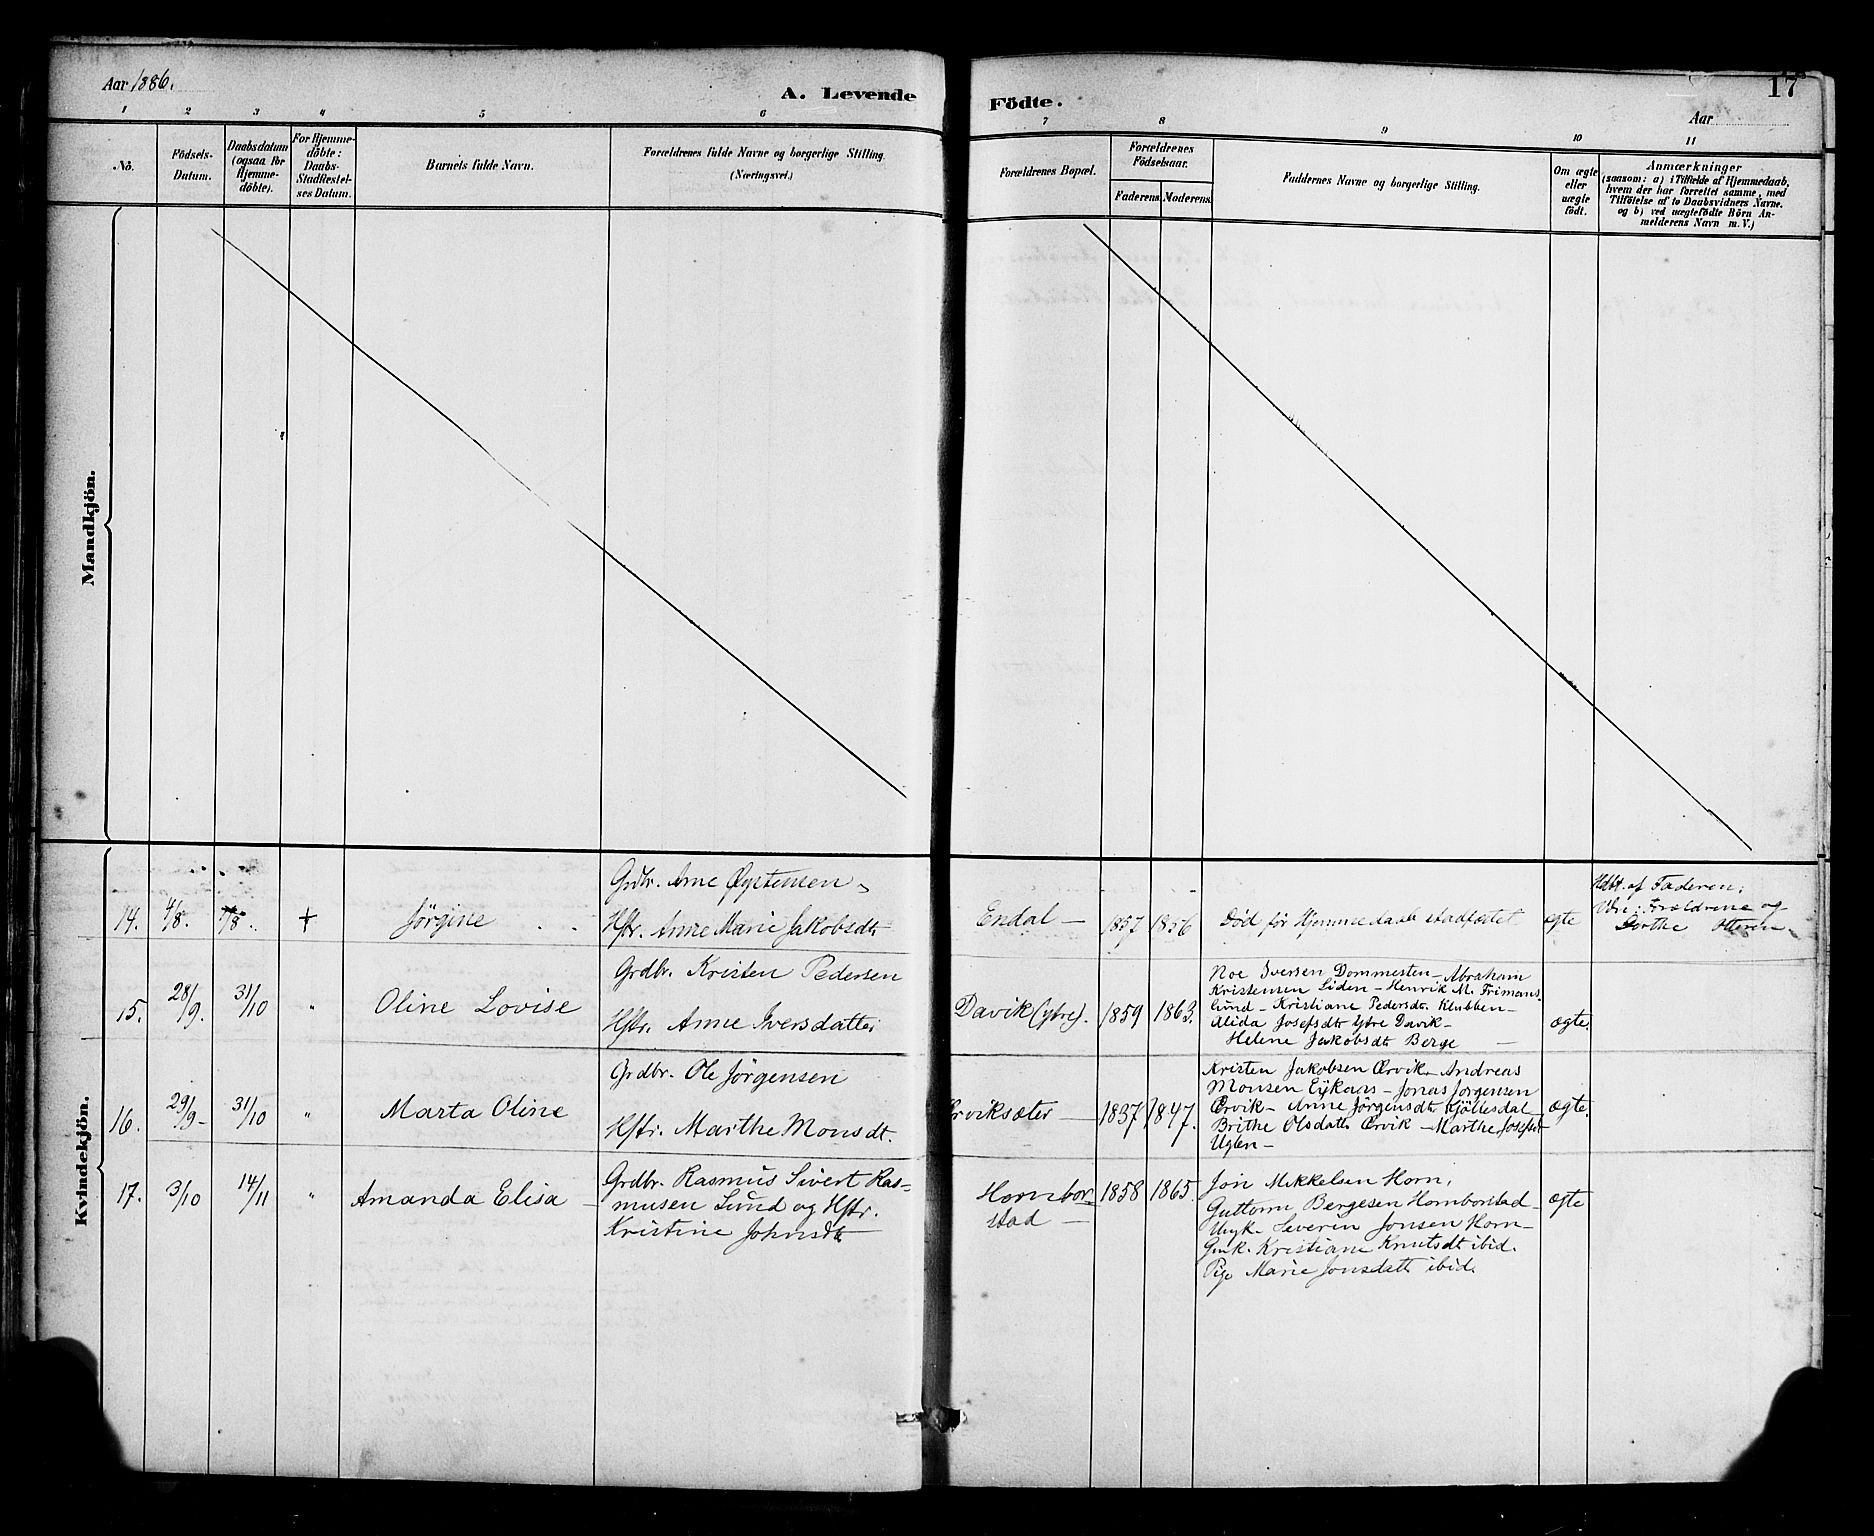 Aar 1886.
A. Levende
Födte.
17
Aar
1 2 3 4 5 6
7 8 9 10 11
No.
Födsels-
Datum.
Daabsdatum
(ogsaa for
Hjemme-
döbte).
For Hjemme-
döbte:
Daabs-
Stadfæstel-
ses Datum.
Barnets fulde Navn.
Forældrenes fulde Navne og borgerlige Stilling.
(Næringsvei.)
Forældrenes Bopæl.
Forældrenes
Födselsaar.
Faderens.
Moderens.
Faddernes Navne og borgerlige Stilling.
Om ægte
eller
uægte
födt.
Anmærkninger
(saasom: a) i Tilfælde af Hjemmedaab,
hvem der har forrettet samme, med
Tilföielse af to Daabsvidners Navne.
og b) ved uægtefödte Börn An-
melderens Navn m. V.)
Mandkjön.
Kvindekjön.
14. 4/8. /8. + Jörgine
Grdbr. Arne Øystensen
Hstr. Anne Marie Jakobsdtr
Endal — 1857 1856
Död för Hjemmedaab stadfæstet
ægte
Hdbt. af Faderen;
Vdre: Forældrene og
Dorthe Otteren
15. 28/9. 31/10 " Oline Lovise
Grdbr. Kristen Pedersen
Hstr. Anne Iversdatter
Davik (ytre). 1859 1863.
Noe Iversen Dommesten — Abraham
Kristensen Liden — Henrik M. Frimans
lund — Kristiane Pedersdt. Klubben —
Alida Josefsdtr Ytre Davik —
Helene Jakobsdt. Berge —
ægte.
16. 29/9 - 31/10 " Marta Oline
Grdbr. Ole Jörgensen
Hstr. Marthe Monsdt.
Ørviksæter — 1837 1847.
Kristen Jakobsen Ørvik — Andreas
Monsen Eikaas — Jonas Jörgensen
Ørvik — Anne Jörgensdt. Kjöllesdal
Brithe Olsdatt. Ørvik — Marthe Josefsd
Uglen —
ægte.
17. 3/10 14/11 " Amanda Elisa —
Grdbr. Rasmus Sivert Ras=
musen Lund og Hstr.
Kristine Johnsdt
Hornbor
stad — 1858 1865.
Jon Mikkelsen Horn,
Guttorm Bergesen Hornborstad —
Ungk. Severin Jonsen Horn —
Gmk. Kristiane Knutsdt ibid.
Pige Marie Jonsdatt. ibid.
ægte